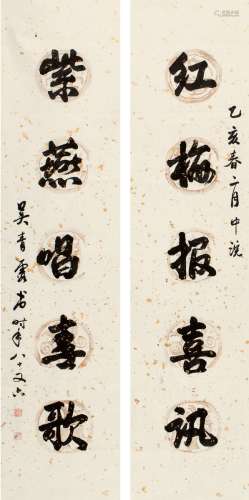 红梅报喜讯
乙亥春二月中浣
紫燕唱喜歌
吴青霞书时年八十又六